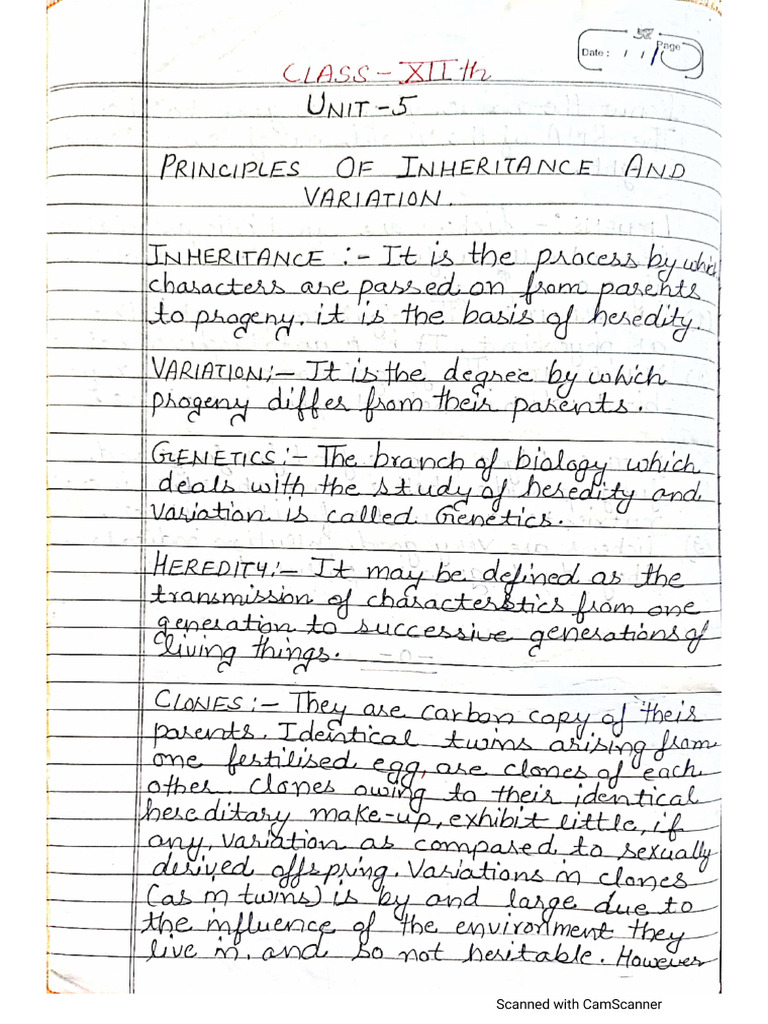 Date : / / Page
CLASS - XIIth
UNIT - 5
PRINCIPLES OF INHERITANCE AND
VARIATION.
INHERITANCE :- It is the process by which
characters are passed on from parents
to progeny. it is the basis of heredity.
VARIATION :- It is the degree by which
progeny differ from their parents.
GENETICS :- The branch of biology which
deals with the study of heredity and
variation is called Genetics.
HEREDITY :- It may be defined as the
transmission of characterstics from one
generation to successive generations of
living things.
CLONES :- They are carbon copy of their
parents. Identical twins arising from
one fertilised egg, are clones of each
other. Clones owing to their identical
hereditary make-up, exhibit little, if
any, variation as compared to sexually
derived offspring. Variations in clones
(as in twins) is by and large due to
the influence of the environment they
live in, and so not heritable. However
Scanned with CamScanner